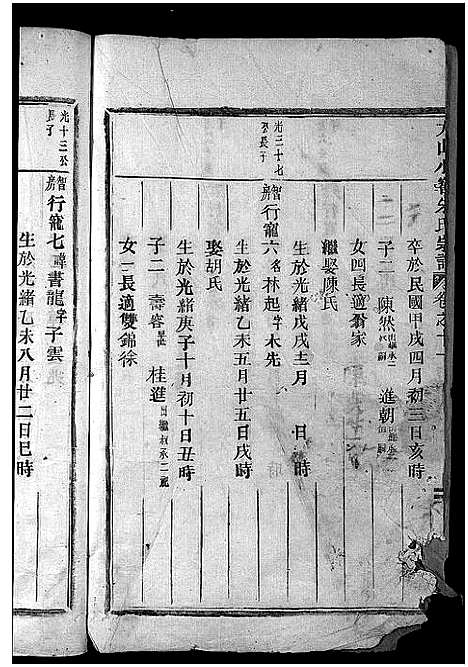 氏宗譜 卷之十一
卒於民國甲戌四月初三日亥時
子二 陳然 進朝
女四長適翁家
繼娶陳氏
生於光緒戊戌十二月 日 時
光三十七公長子
智房行寵六名林起字木先
生於光緒乙未五月廿五日戌時
娶胡氏
生於光緒庚子十月初十日丑時
子二 壽容 桂進 繼叔承二祀
女一長適雙錦徐
光十三公長子
智房行寵七諱書龍字子雲
生於光緒乙未八月廿二日巳時